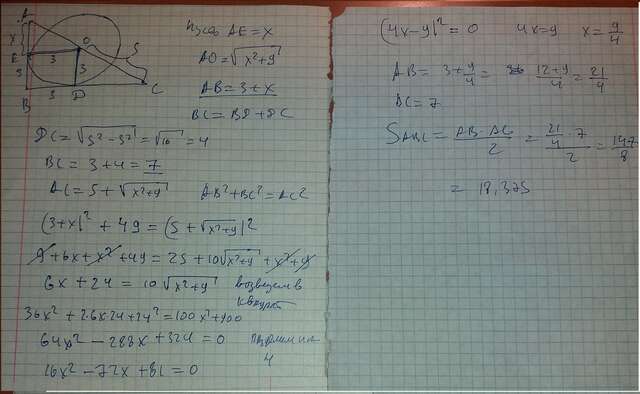 A
x
E
3
B
3
3
3
O
5
D
C
Пусть AE = x
AO = √x²+9
AB = 3+x
BC = BD + DC
DC = √5²-3² = √16 = 4
BC = 3+4 = 7
AC = 5+√x²+9 AB²+BC² = AC²
(3+x)² + 49 = (5+√x²+9)²
9+6x+x²+49 = 25+10√x²+9+x²+9
6x+24 = 10√x²+9 возведем в
квадрат
36x²+2·6x·24+24² = 100x²+900
64x² - 288x + 324 = 0 поделим на
4
16x² - 72x + 81 = 0
(4x-9)² = 0 4x=9 x = 9/4
AB = 3+9/4 = 12+9/4 = 21/4
BC = 7
SABC = AB·BC/2 = 21/4·7/2 = 147/8
= 18,375